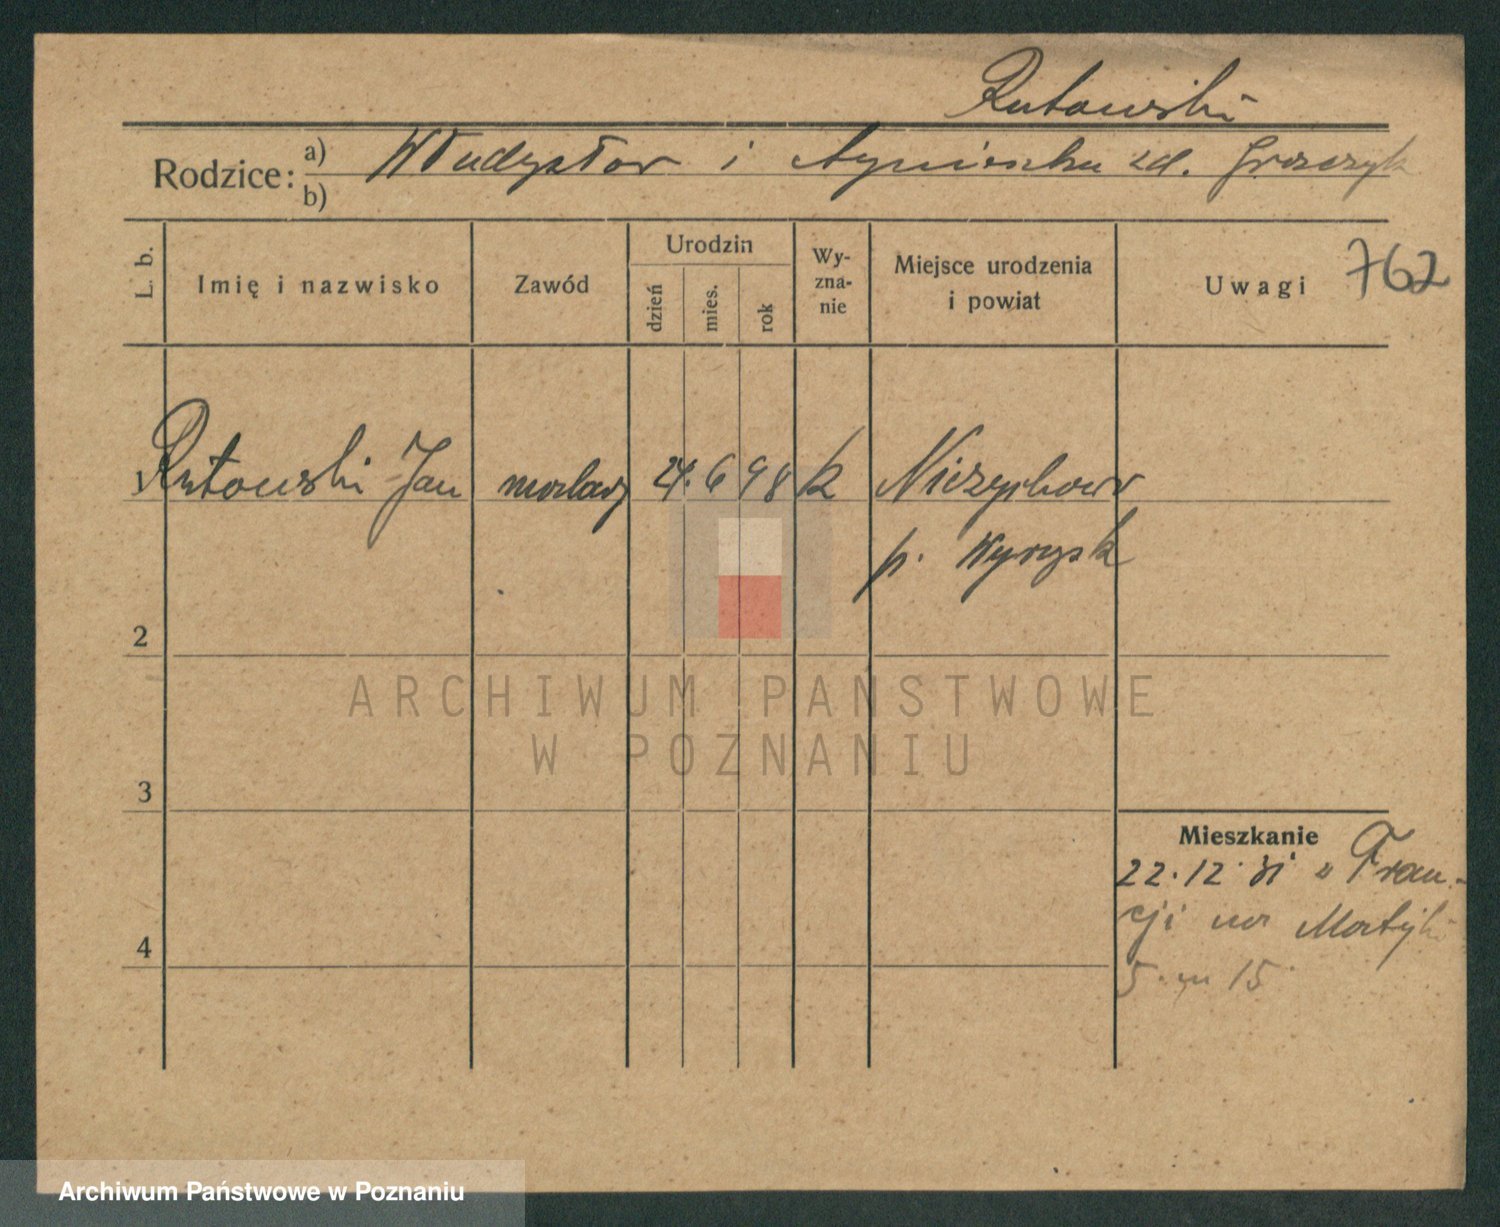 Rutowski
Rodzice: a) Władysław i Agnieszka zd. Grzeszyk
b)
L. b. Imię i nazwisko Zawód Urodzin dzień mies. rok Wy-zna-nie Miejsce urodzenia i powiat Uwagi 762
1 Rutowski Jan murlarz 24. 6 98 k Niezychowo
p. Wyrzysk
2
ARCHIWUM PAŃSTWOWE
W POZNANIU
3
Mieszkanie
22.12 31 z Fran-
cji na Matejki
4
5. m 15
Archiwum Państwowe w Poznaniu